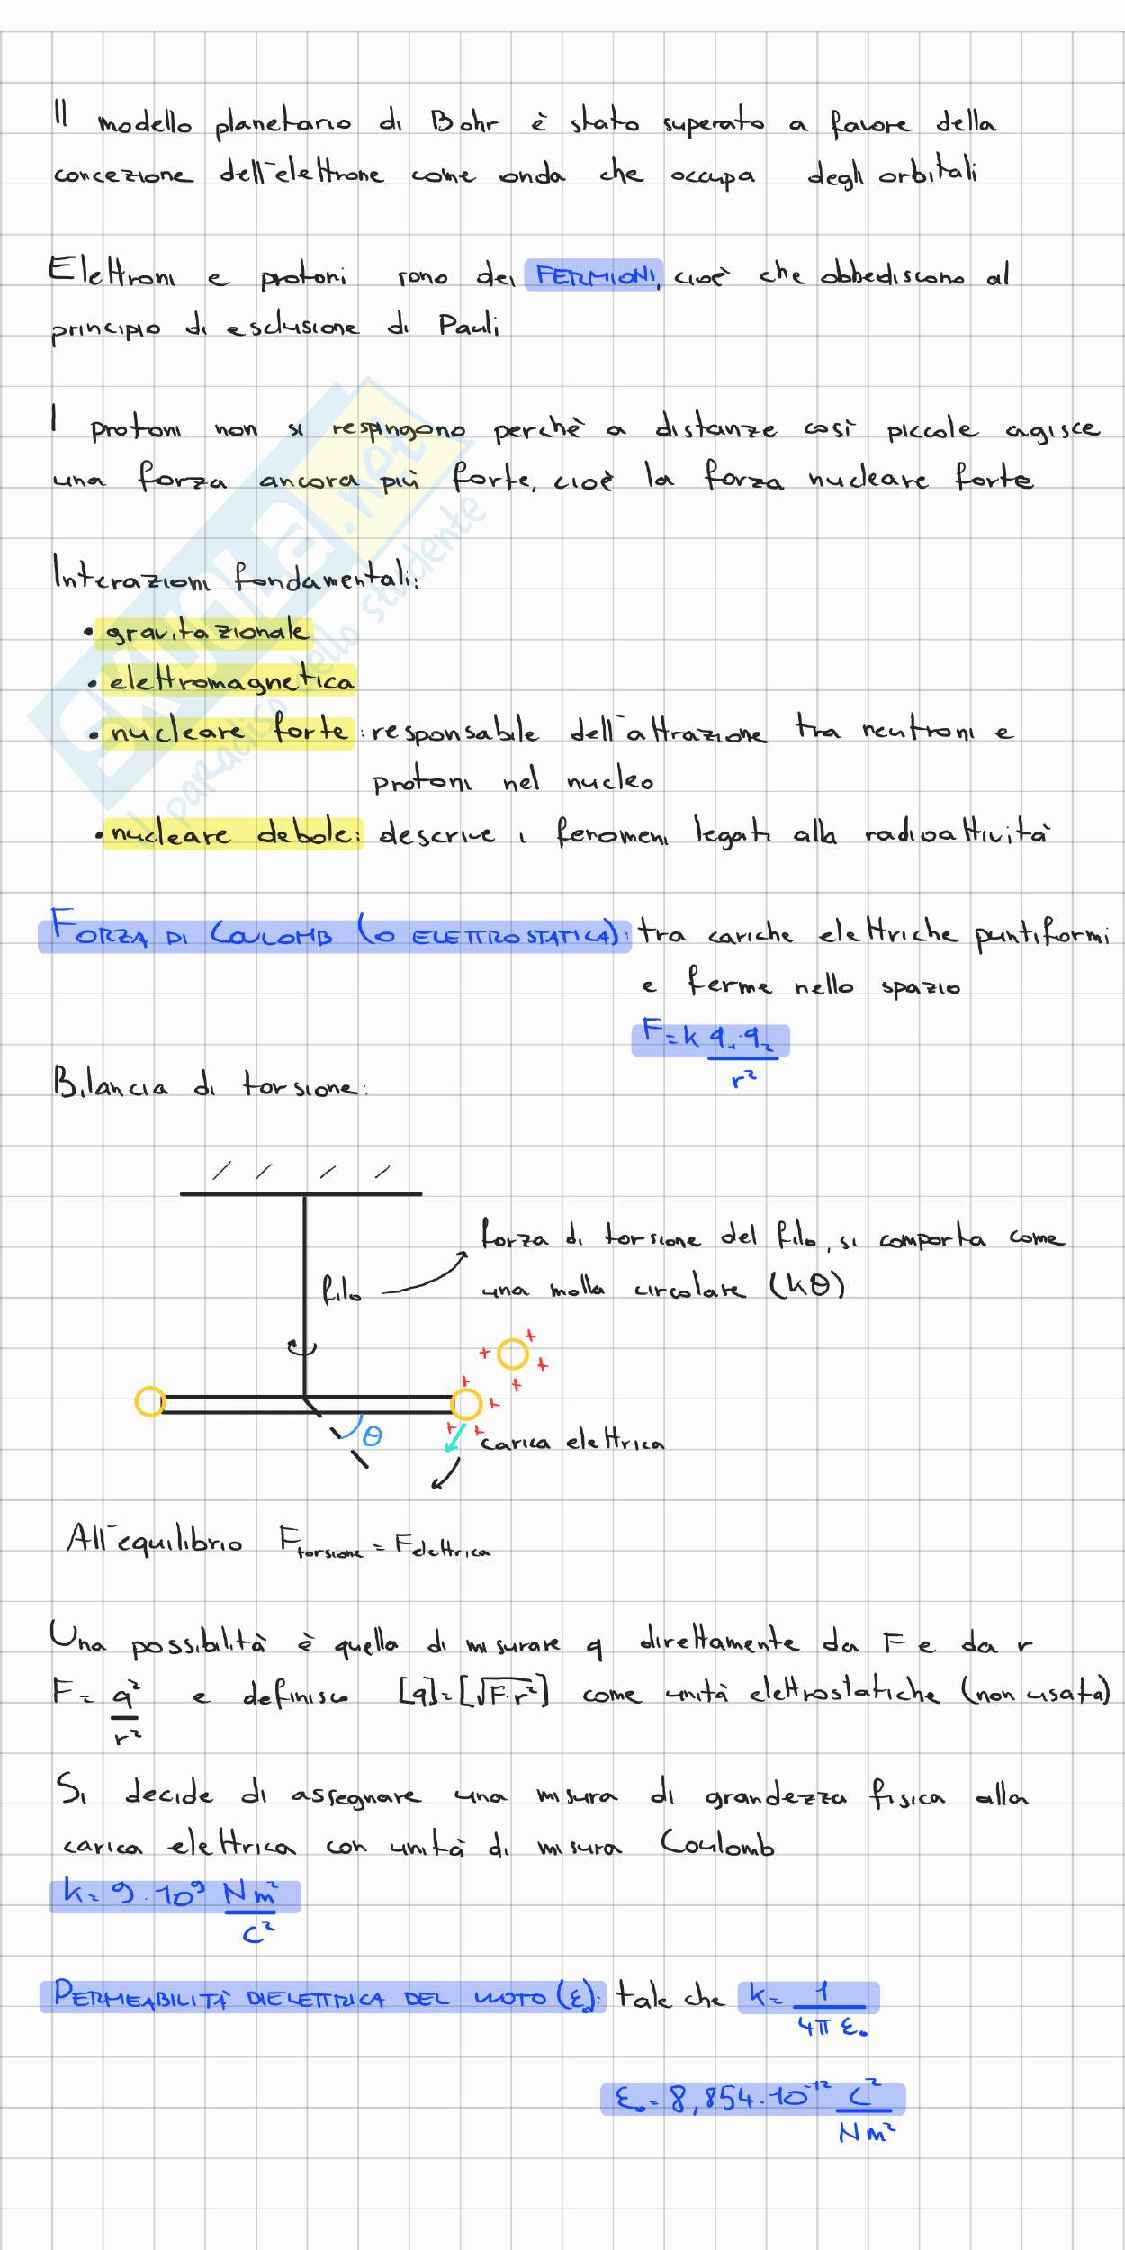 Il modello planetario di Bohr è stato superato a favore della
concezione dell'elettrone come onda che occupa degli orbitali
Elettroni e protoni sono dei FERMIONI, cioè che obbediscono al
principio di esclusione di Pauli
I protoni non si respingono perchè a distanze così piccole agisce
una forza ancora più forte, cioè la forza nucleare forte
Interazioni fondamentali:
• gravitazionale
• elettromagnetica
• nucleare forte: responsabile dell'attrazione tra neutroni e
protoni nel nucleo
• nucleare debole: descrive i fenomeni legati alla radioattività
FORZA DI COULOMB (O ELETTROSTATICA): tra cariche elettriche puntiformi
e ferme nello spazio
F = k q₁·q₂ / r²
Bilancia di torsione:
forza di torsione del filo, si comporta come
filo
una molla circolare (kθ)
+ + + +
+ + + +
θ
carica elettrica
All'equilibrio F torsione = F elettrica
Una possibilità è quella di misurare q direttamente da F e da r
F = q² / r² e definisco [q] = [√F·r²] come unità elettrostatiche (non usata)
Si decide di assegnare una misura di grandezza fisica alla
carica elettrica con unità di misura Coulomb
k = 9·10⁹ Nm² / C²
PERMEABILITÀ DIELETTRICA DEL VUOTO (ε): tale che k = 1 / 4π ε₀
ε₀ = 8,854·10⁻¹² C² / Nm²
SKUOLA.net
il paradiso dello studente